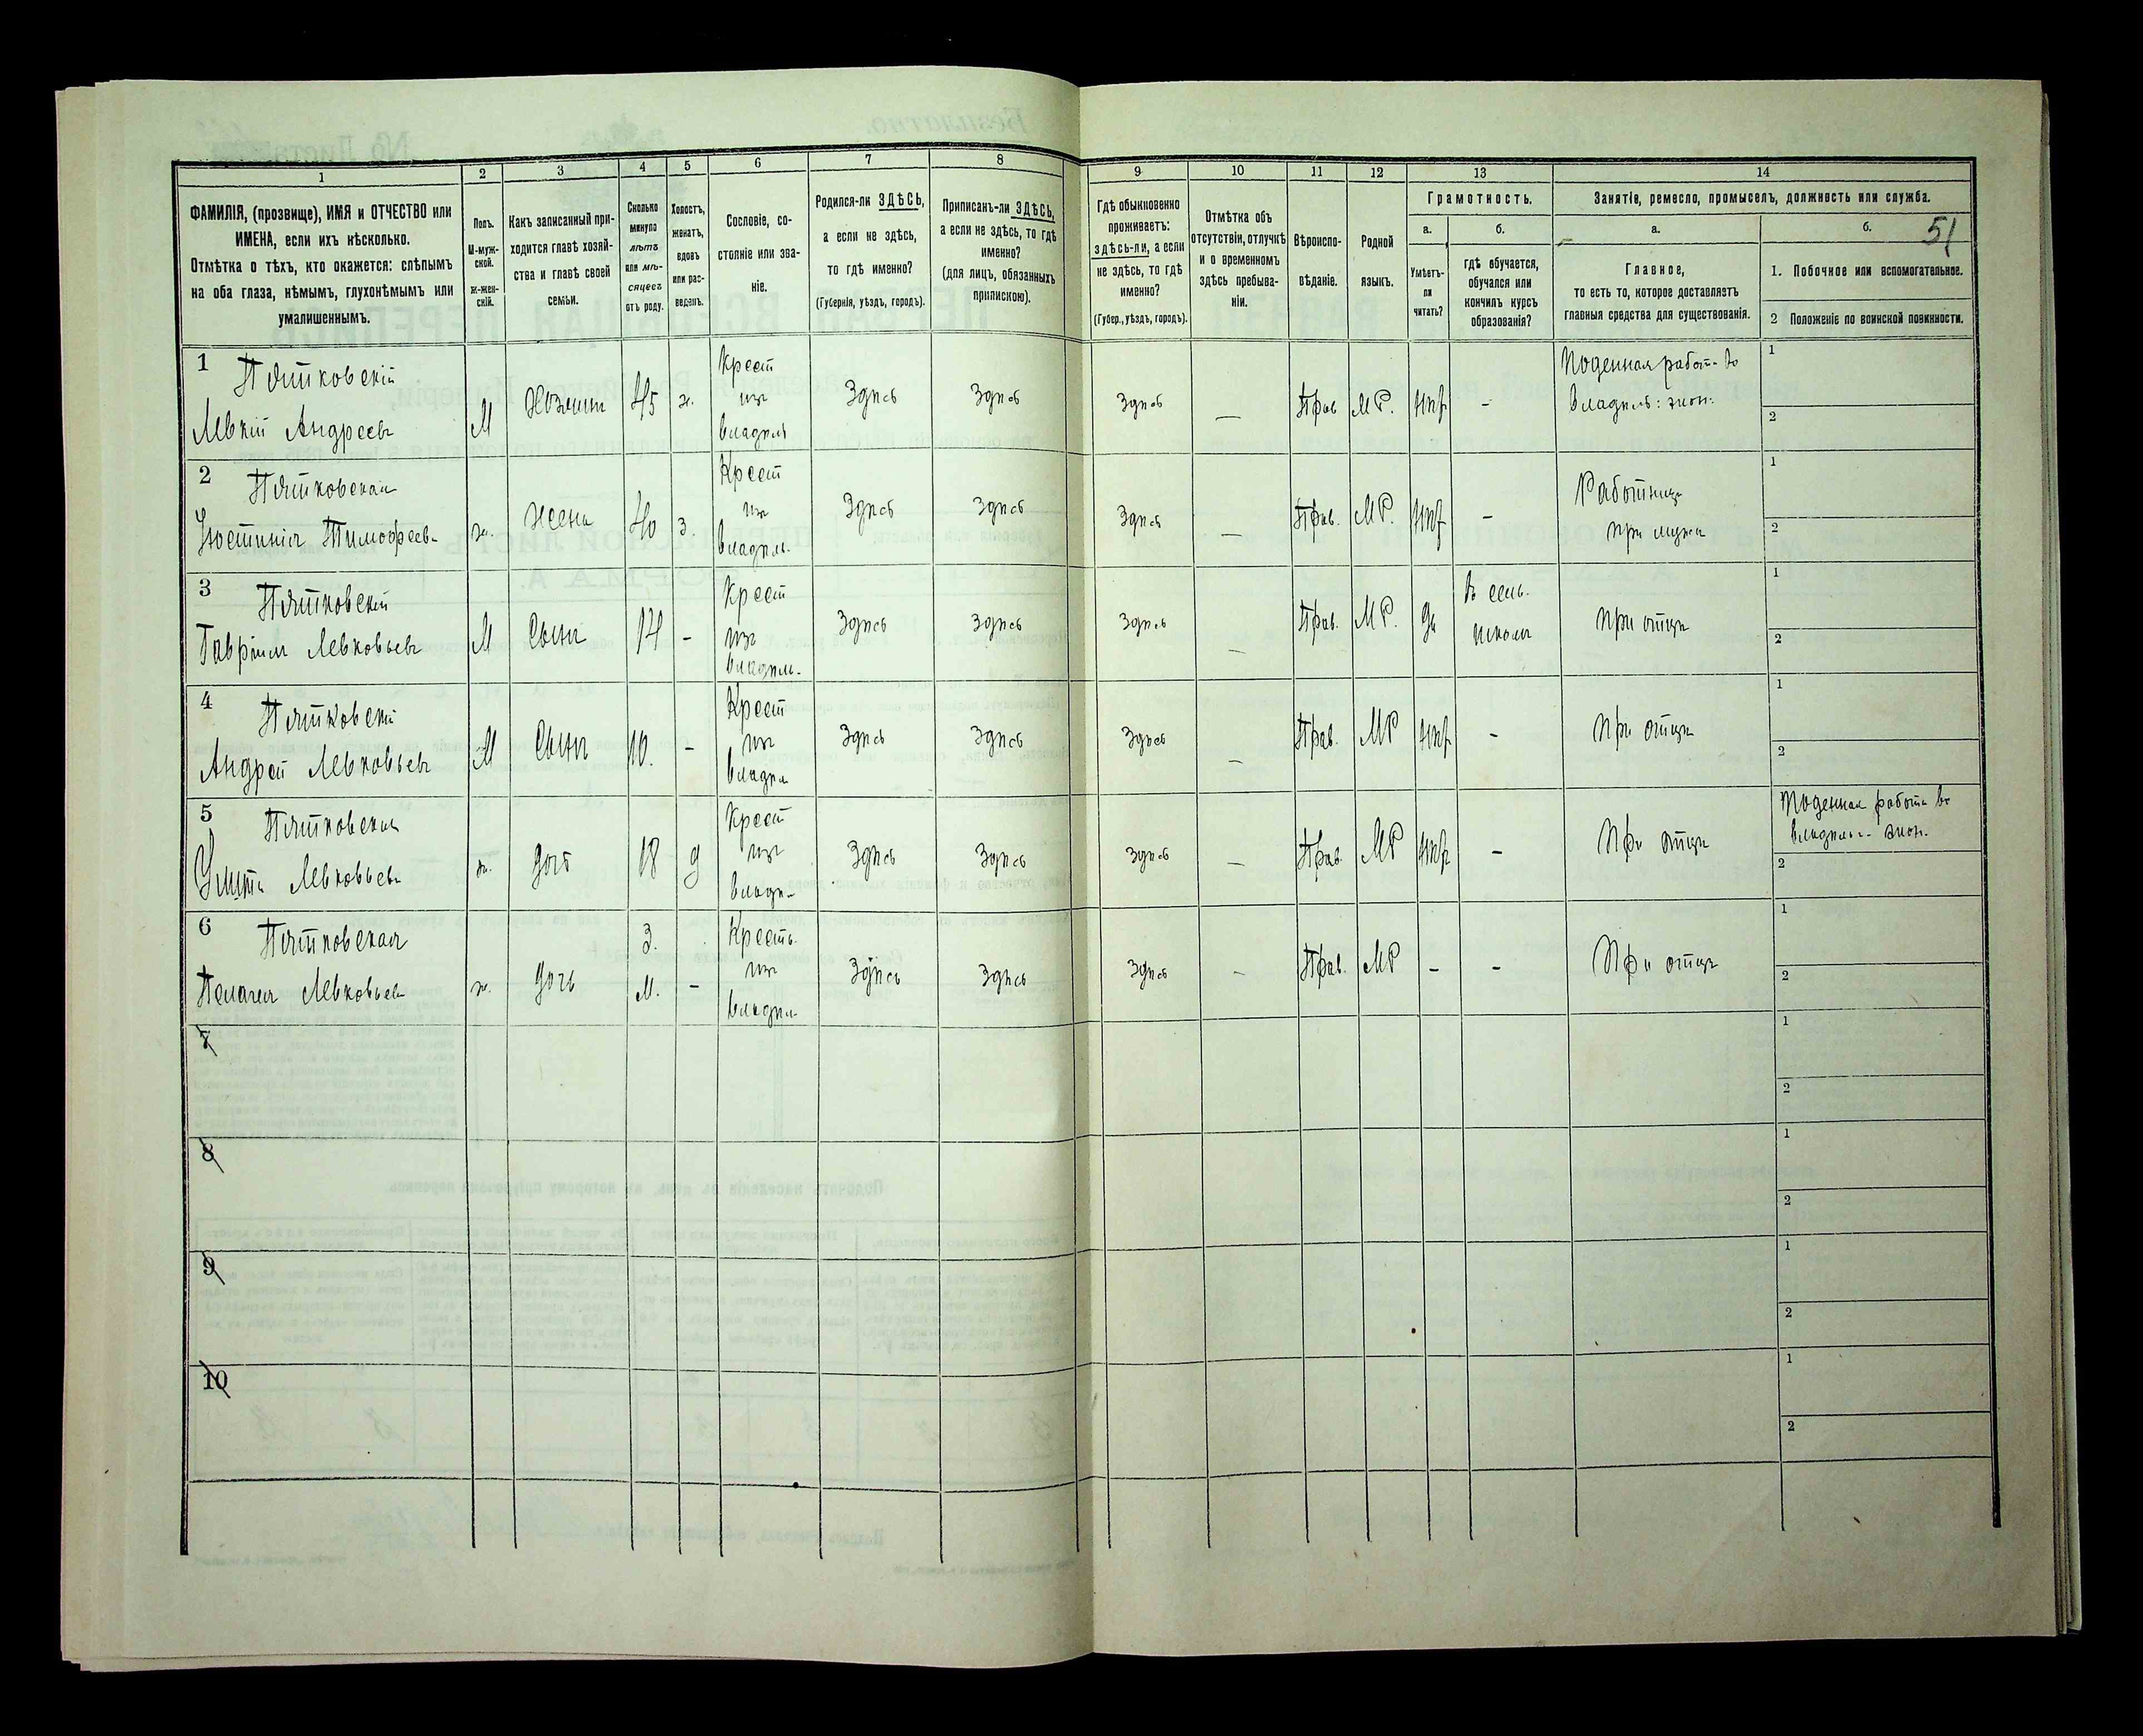 1
2
3
4
5
6
7
8
9
10
11
12
13
14
ФАМИЛІЯ, (прозвище), ИМЯ и ОТЧЕСТВО или
ИМЕНА, если ихъ нѣсколько.
Отмѣтка о тѣхъ, кто окажется: слѣпымъ
на оба глаза, нѣмымъ, глухонѣмымъ или
умалишеннымъ.
Полъ.
М-муж-
ской.
Ж-жен-
скій.
Какъ записанный при-
ходится главѣ хозяй-
ства и главѣ своей
семьи.
Сколько
минуло
лѣтъ
или мѣ-
сяцевъ
отъ роду.
Холостъ,
женатъ,
вдовъ
или раз-
веденъ.
Сословіе, со-
стояніе или зва-
ніе.
Родился-ли ЗДѢСЬ,
а если не здѣсь,
то гдѣ именно?
(Губернія, уѣздъ, городъ).
Приписанъ-ли ЗДѢСЬ,
а если не здѣсь, то гдѣ
именно?
(для лицъ, обязанныхъ
припискою).
Гдѣ обыкновенно
проживаетъ:
здѣсь-ли, а если
не здѣсь, то гдѣ
именно?
(Губер., уѣздъ, городъ).
Отмѣтка объ
отсутствіи, отлучкѣ
и о временномъ
здѣсь пребыва-
ніи.
Вѣроиспо-
вѣданіе.
Родной
языкъ.
Грамотность.
а.
б.
Умѣетъ-
ли
читать?
гдѣ обучается,
обучался или
кончилъ курсъ
образованія?
Занятіе, ремесло, промыселъ, должность или служба.
а.
б.
51
Главное,
то есть то, которое доставляетъ
главныя средства для существованія.
1. Побочное или вспомогательное.
2 Положеніе по воинской повинности.
1
Пятковскій
Левкій Андреевъ
М
Хозяинъ
45
ж.
Крест
изъ
владѣль
Здѣсь
Здѣсь
Здѣсь
—
Прав
МР.
нѣт
-
Поденная работ. во
владѣль: экон.
1
2
2
Пятковская
Устинія Тимофеев-
ж.
Жена
40
з.
Крест
изъ
владѣль.
Здѣсь
Здѣсь
Здѣсь
—
Прав.
МР.
нѣт
-
Работница
при мужѣ
1
2
3
Пятковскій
Гавріилъ Левковьевъ
М
Сынъ
14
-
Крест
изъ
владѣль.
Здѣсь
Здѣсь
Здѣсь
—
Прав.
МР.
да
въ сель.
школѣ
при отцѣ
1
2
4
Пятковскій
Андрей Левковьевъ
М
Сынъ
10.
-
Крест
изъ
владѣл
Здѣсь
Здѣсь
Здѣсь
—
Прав.
МР
нѣт
-
при отцѣ
1
2
5
Пятковская
Левковьева
ж.
дочь
18
д
Крест
изъ
владѣ-
Здѣсь
Здѣсь
Здѣсь
—
Прав.
МР
нѣт
-
При отцѣ
Поденная работа во
владѣльч. экон.
2
6
Пятковская
Пелагея Левковьев
ж.
дочь
3.
м.
-
Кресть.
изъ
владѣл.
Здѣсь
Здѣсь
Здѣсь
-
Прав.
МР
-
-
При отцѣ
1
2
7
1
2
8
1
2
9
1
2
10
1
2